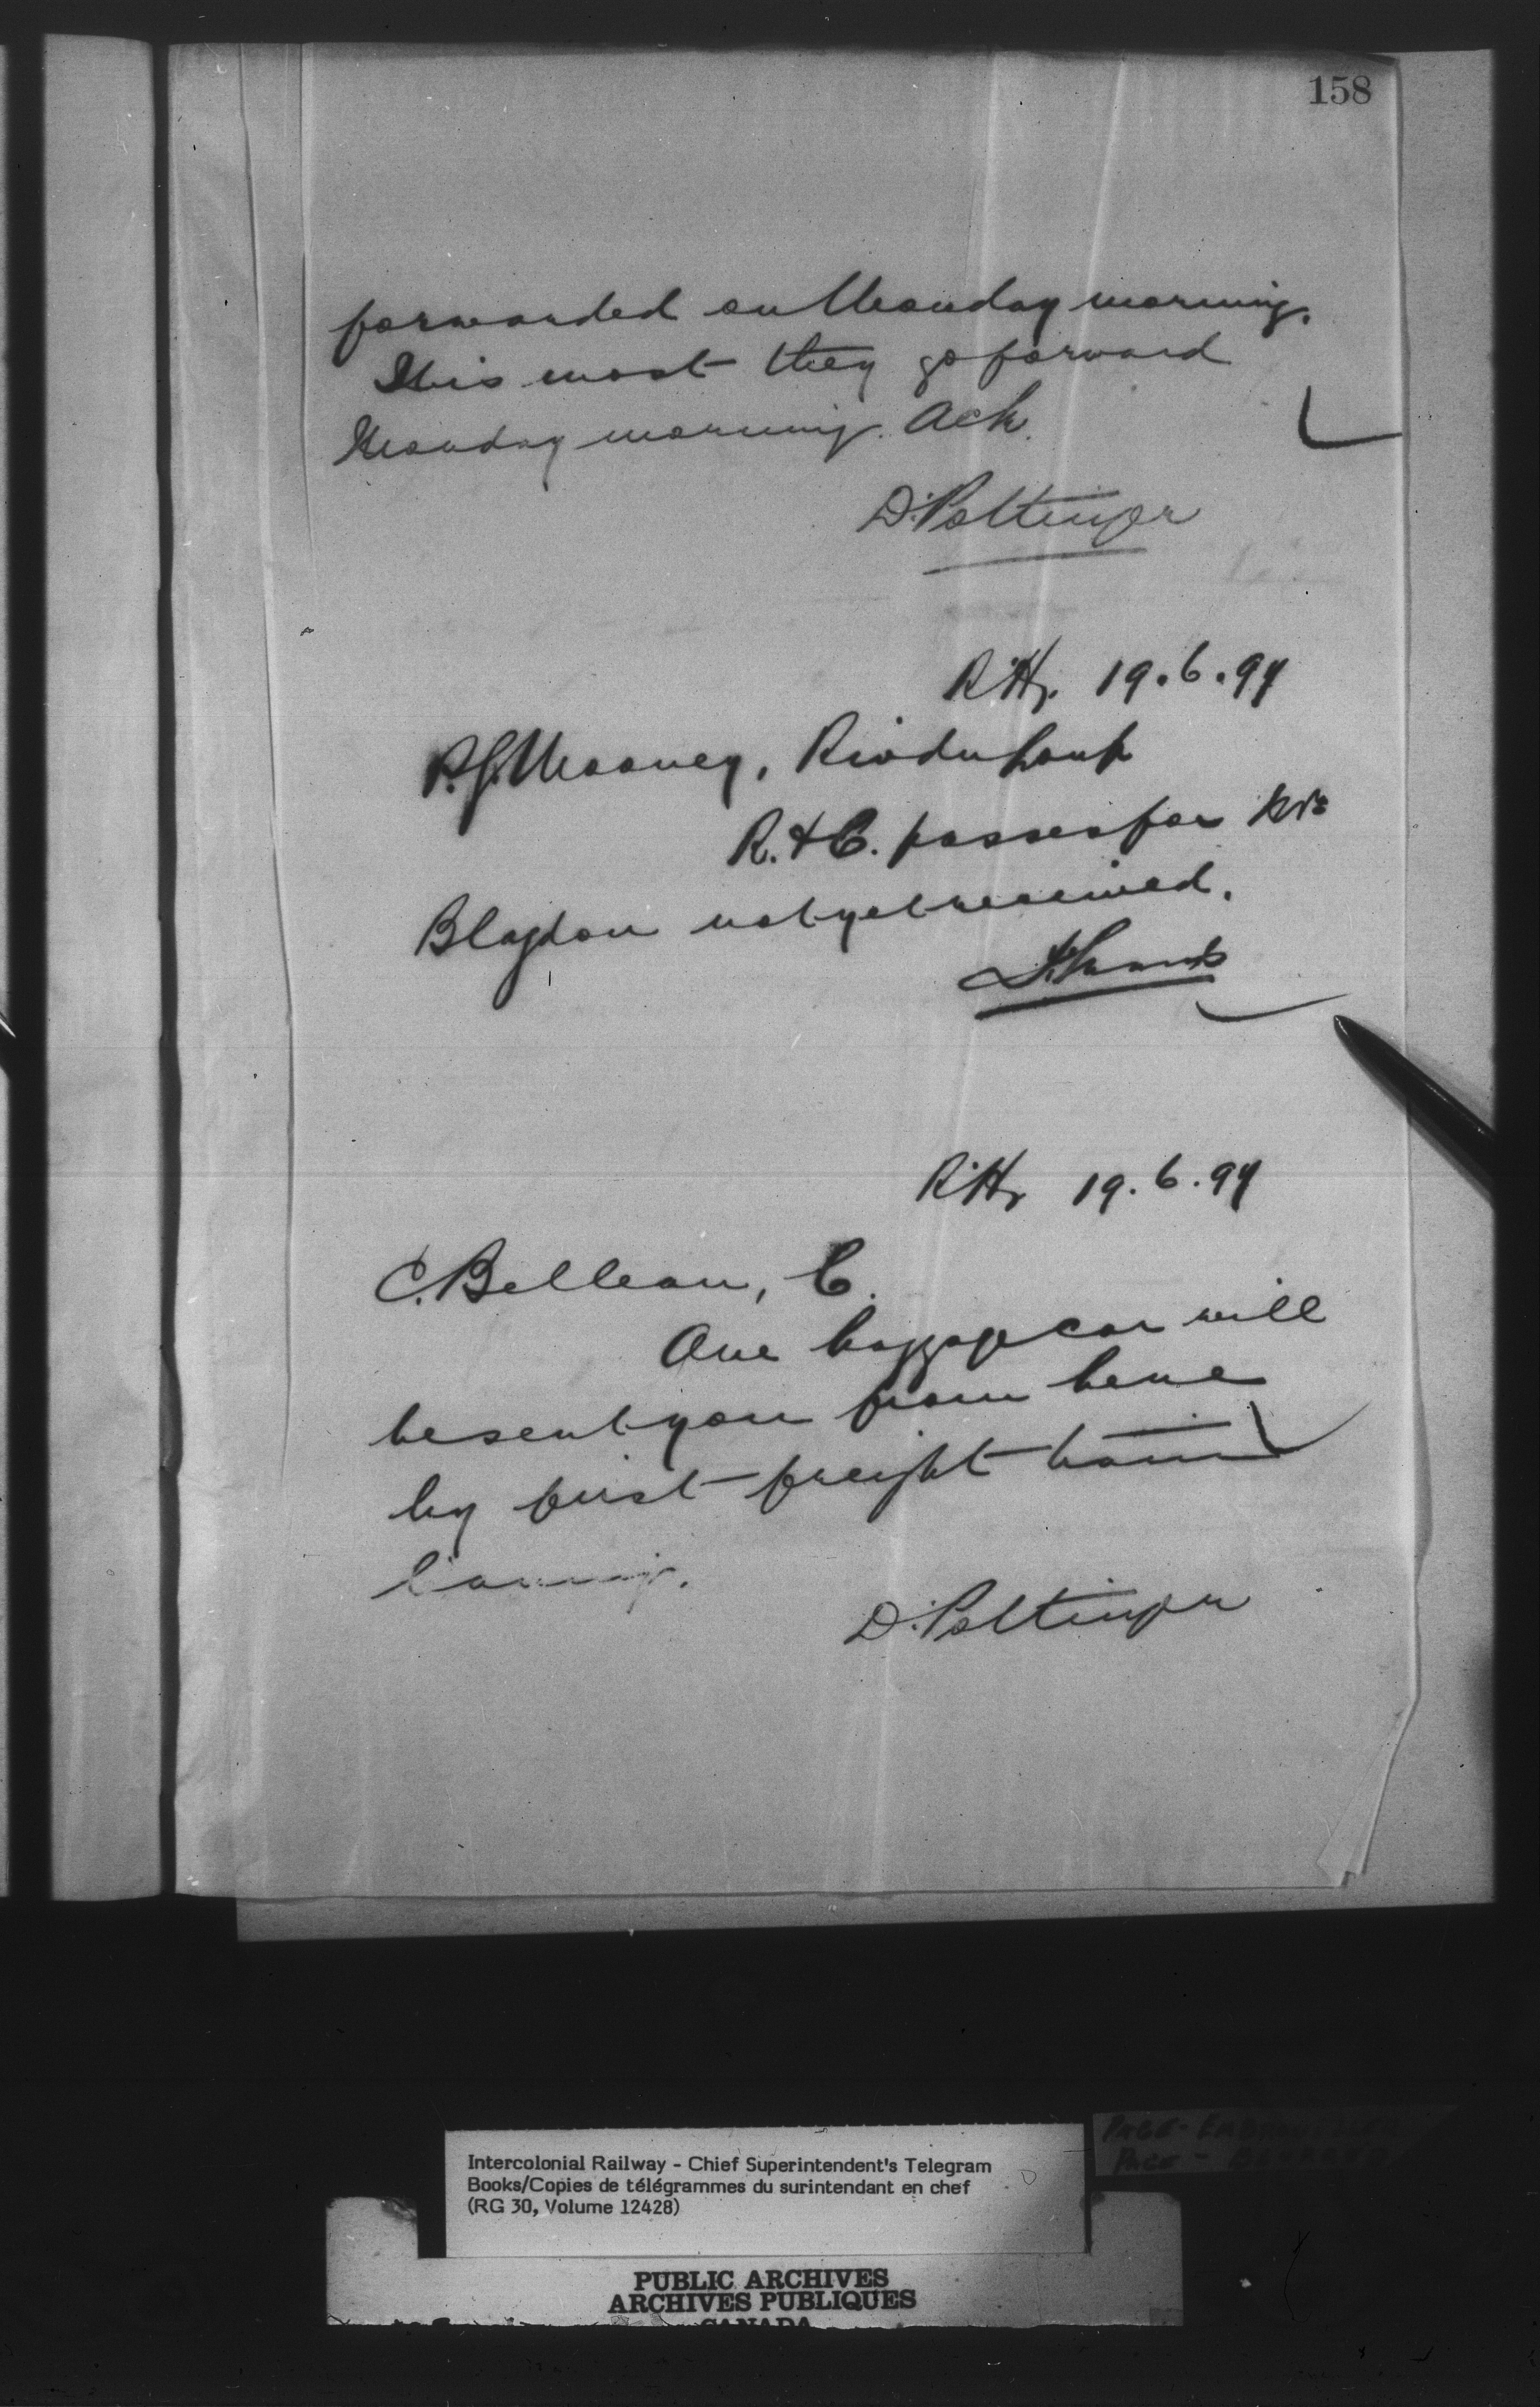 158
forwarded on Monday morning.
This most they go forward
Monday morning. Ack.
D. Pottinger
19.6.97
P.S. Mooney, Riv du Loup
R. & C. passes for Mrs
Blagdon not yet received.
19.6.97
C. Belleau, C.
One baggage car will
be sent you from here
by first freight train
leaving.
D. Pottinger
Intercolonial Railway - Chief Superintendent's Telegram
Books/Copies de télégrammes du surintendant en chef
(RG 30, Volume 12428)
PUBLIC ARCHIVES
ARCHIVES PUBLIQUES
CANADA